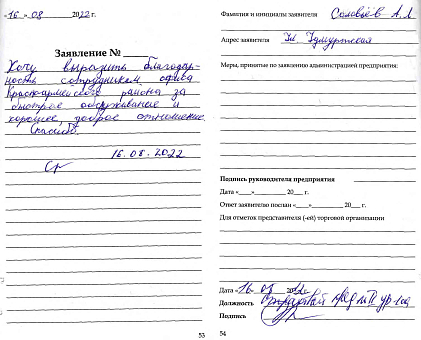 «16» 08 2022 г.
Заявление № ____
Хочу выразить благодар-
ность сотрудникам офиса
Красноармейского района за
быстрое обслуживание и
хорошее, доброе отношение.
Спасибо.
16.08.2022
53
Фамилия и инициалы заявителя Соловьёв А.Л
Адрес заявителя Ул. Удмуртская
Меры, принятые по заявлению администрацией предприятия:
Подпись руководителя предприятия
Дата «___» ________ 20___ г.
Ответ заявителю послан «____» ________ 20___ г.
Для отметок представителя (-ей) торговой организации
Дата «16» 08 2022г.
Должность
Подпись
54